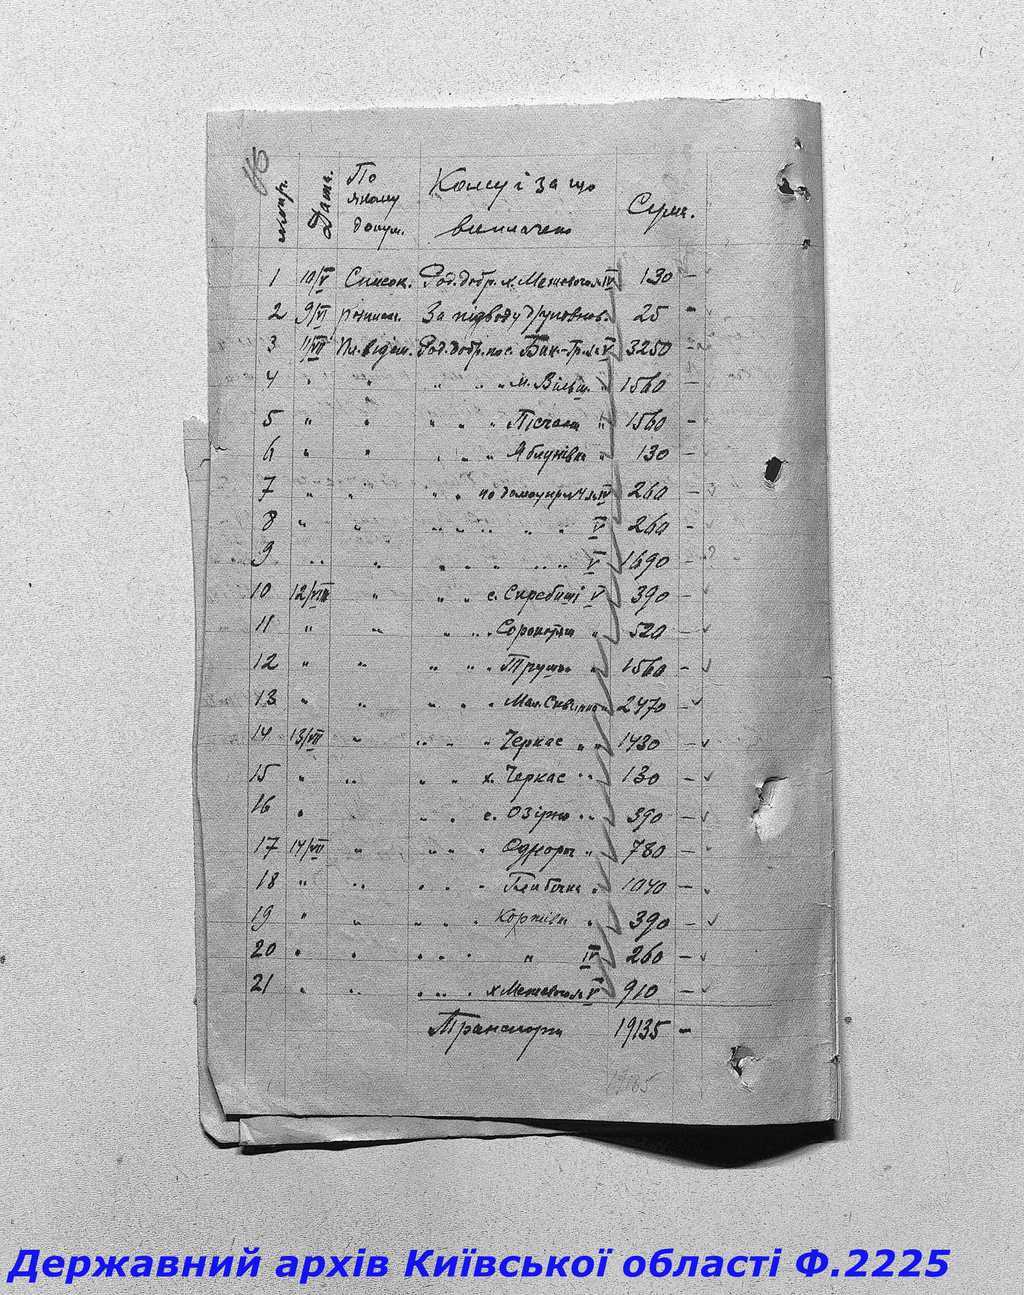 Дата. По якому докум. Кому і за що виплачено Сума.
1 10/V Список. Род. добр. х. Межевого за IV 130 –
2 9/VI розписк. За підводу 25 –
3 11/VII Пл. відом. Род. добр. по с. Бак.-Гр. за V 3250 –
4 " " " " " " м. Вільш. " 1560 –
5 " " " " " Пісчана " 1560 –
6 " " " " " Яблунівка " 130 –
7 " " " " по IV 260 –
8 " " " " " " " V 260 –
9 " " " " " " " V 1690 –
10 12/VII " " " с. Скребиші V 390 –
11 " " " " " Сорокотяги " 520 –
12 " " " " " Труш. " 1560 –
13 " " " " " Мал. Сквирка " 2470 –
14 13/VII " " " " Черкас " 1430 –
15 " " " " х. Черкас " 130 –
16 " " " с. Озірна " 390 –
17 14/VII " " " " Однорог " 780 –
18 " " " " " Глибочка " 1040 –
19 " " " " " Коржівка " 390 –
20 " " " " " " IV 260 –
21 " " " " " х. Межевого за V 910 –
Транспорт 19135 –
Державний архів Київської області Ф.2225